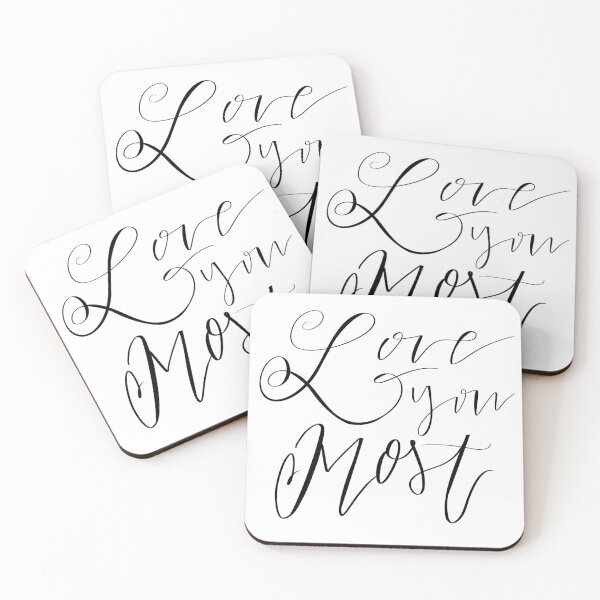 Love
you
Love
you
Most
Love
you
Most
Love
you
Most